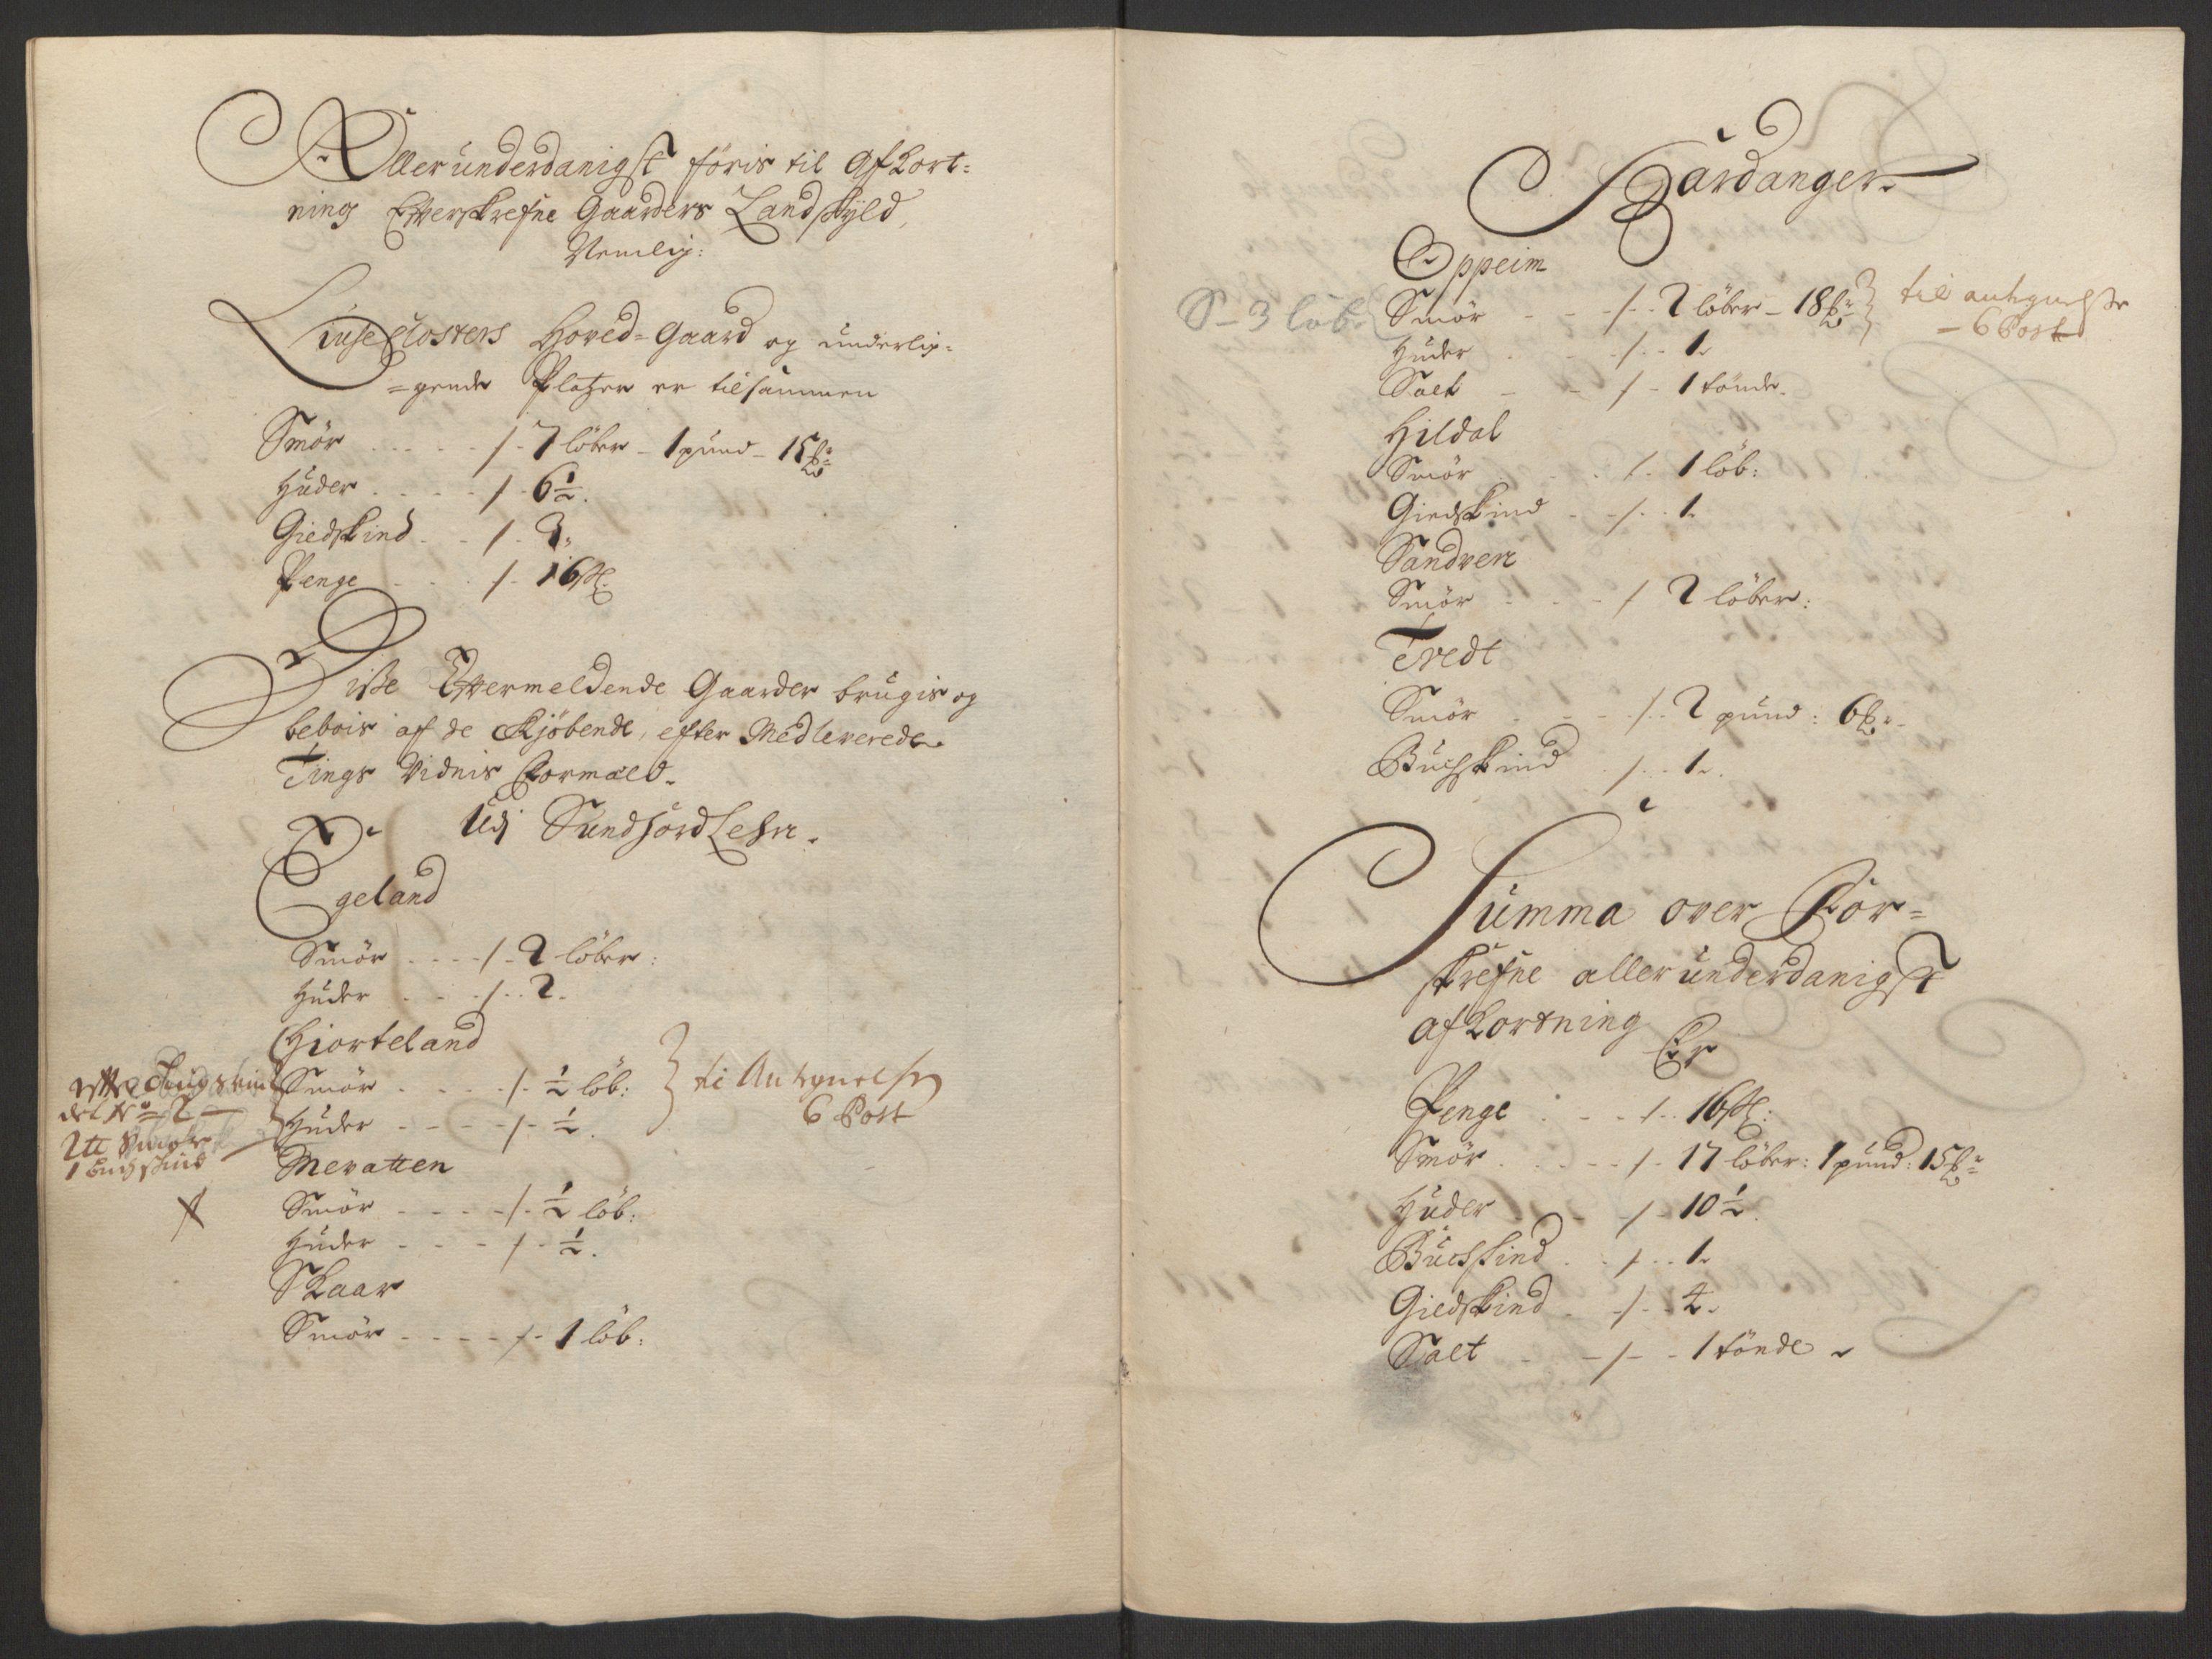 Allerúnderdanigst föris til Afkort-
ning Efterskrefne Gaarders Landskÿld,
Nemlig:
Lÿseclosters Hoved-Gaard og underlig-
-gende Platzer er tilsammen
Smör - 7 löber - 1 pund - 15 ℔
Húder - 6½.
Giedskind - 3.
Penge - 16 ß.
Disse Eftermeldende Gaarder brúgis og
bebois af de Kjöbende, efter Medleverede
Tings Vidnis Formæld.
Udj Sundhordlehn.
Egeland
Smör - 2 löber:
Húder - 2.
Hiorteland
Smör - ½ löb: } til Antegnelse
Húder - ½. 6 Post
efter tingsvin
det No 2
1 buchskind
Mevatten
Smör - ½ löb:
Húder - ½.
Skaar
Smör - 1 löb:
Hardanger.
Oppeim
S - 3 löb: Smör - 2 löber - 18 ℔ } til antegnelse
- 6 Post
Húder - 1.
Salt - 1 tönde.
Hildal
Smör - 1 löb:
Giedskind - 1.
Sandven
Smör - 2 löber:
Tvedt
Smör - 2 pund: 6 ℔
Buchskind - 1.
Súmma over For-
skrefne allerúnderdanigst
afkortning
Er
Penge - 16 ß:
Smör - 17 löber: 1 pund: 15 ℔
Húder - 10½.
Búchskind - 1.
Giedskind - 4.
Salt - 1 tönde